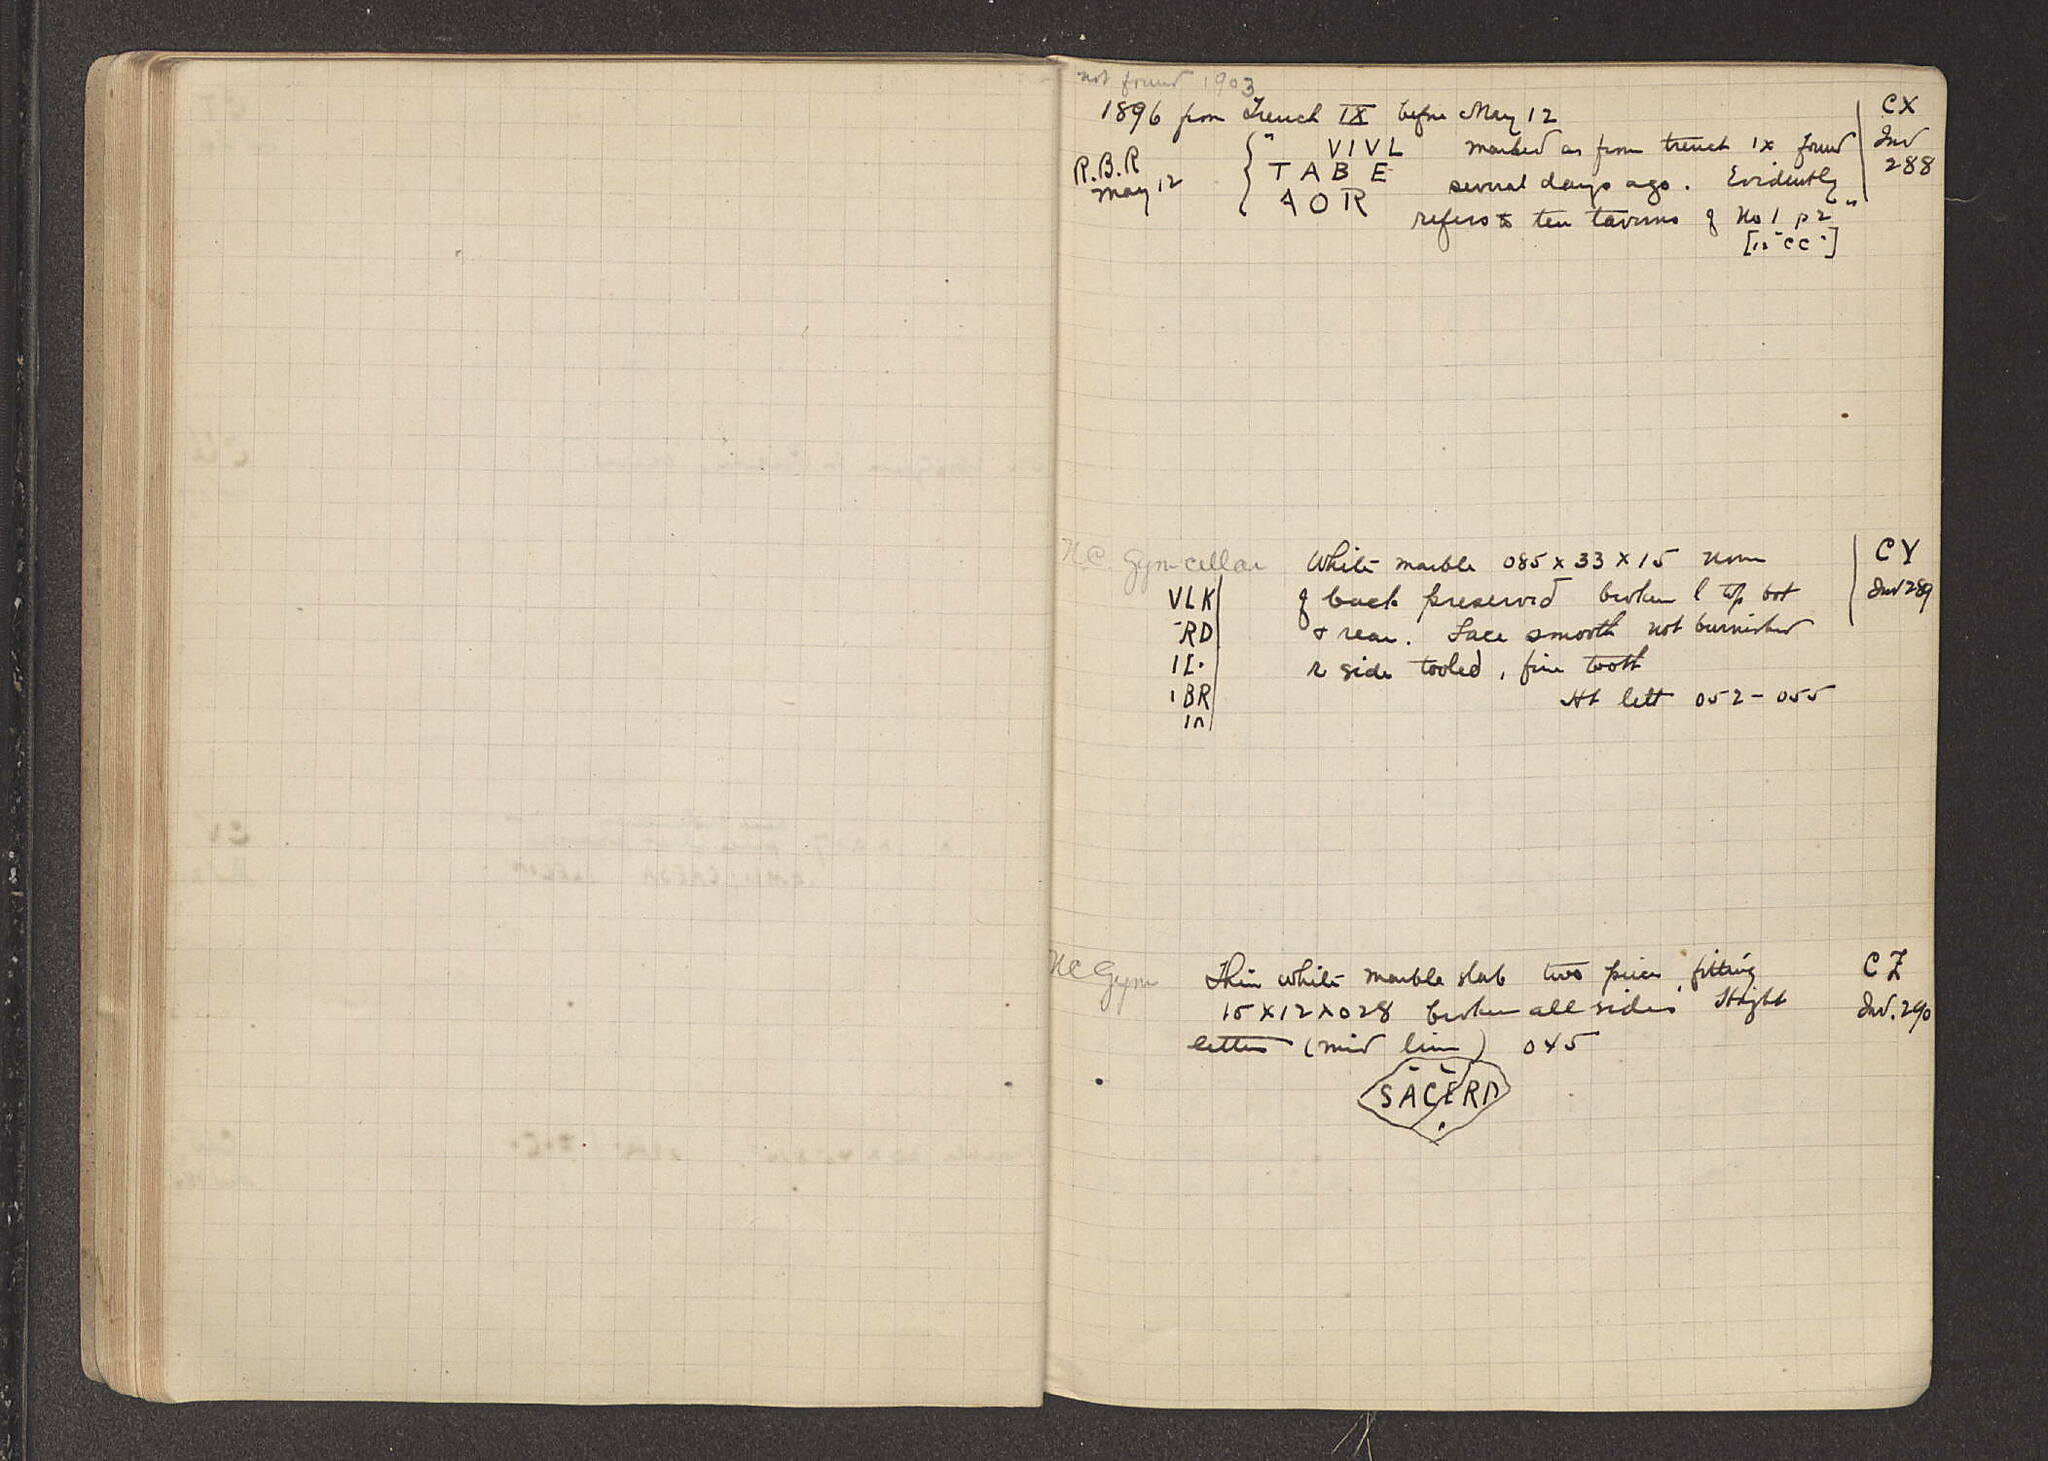 not found 1903
1896 from Trench IX before May 12
CX
Inv
288
R.B.R
May 12
" VIVL
TABE
AOR
marked as from trench IX found
several days ago. Evidently
refers to ten taverns of No 1 p 2"
[in "CC"]
N.C. Gym cellar
White marble 085 x 33 x 15 none
of back preserved broken l top bot
& rear. Face smooth not burnished
r side tooled, fine tooth
Ht lett 052 - 055
VLK
RD
IE·
IBR
CY
Inv 289
NC Gym
Thin white marble slab two pieces, fitting
15 x 12 x 028 broken all sides. Height
letters (mid line) 045
SACERD
CZ
Inv. 290